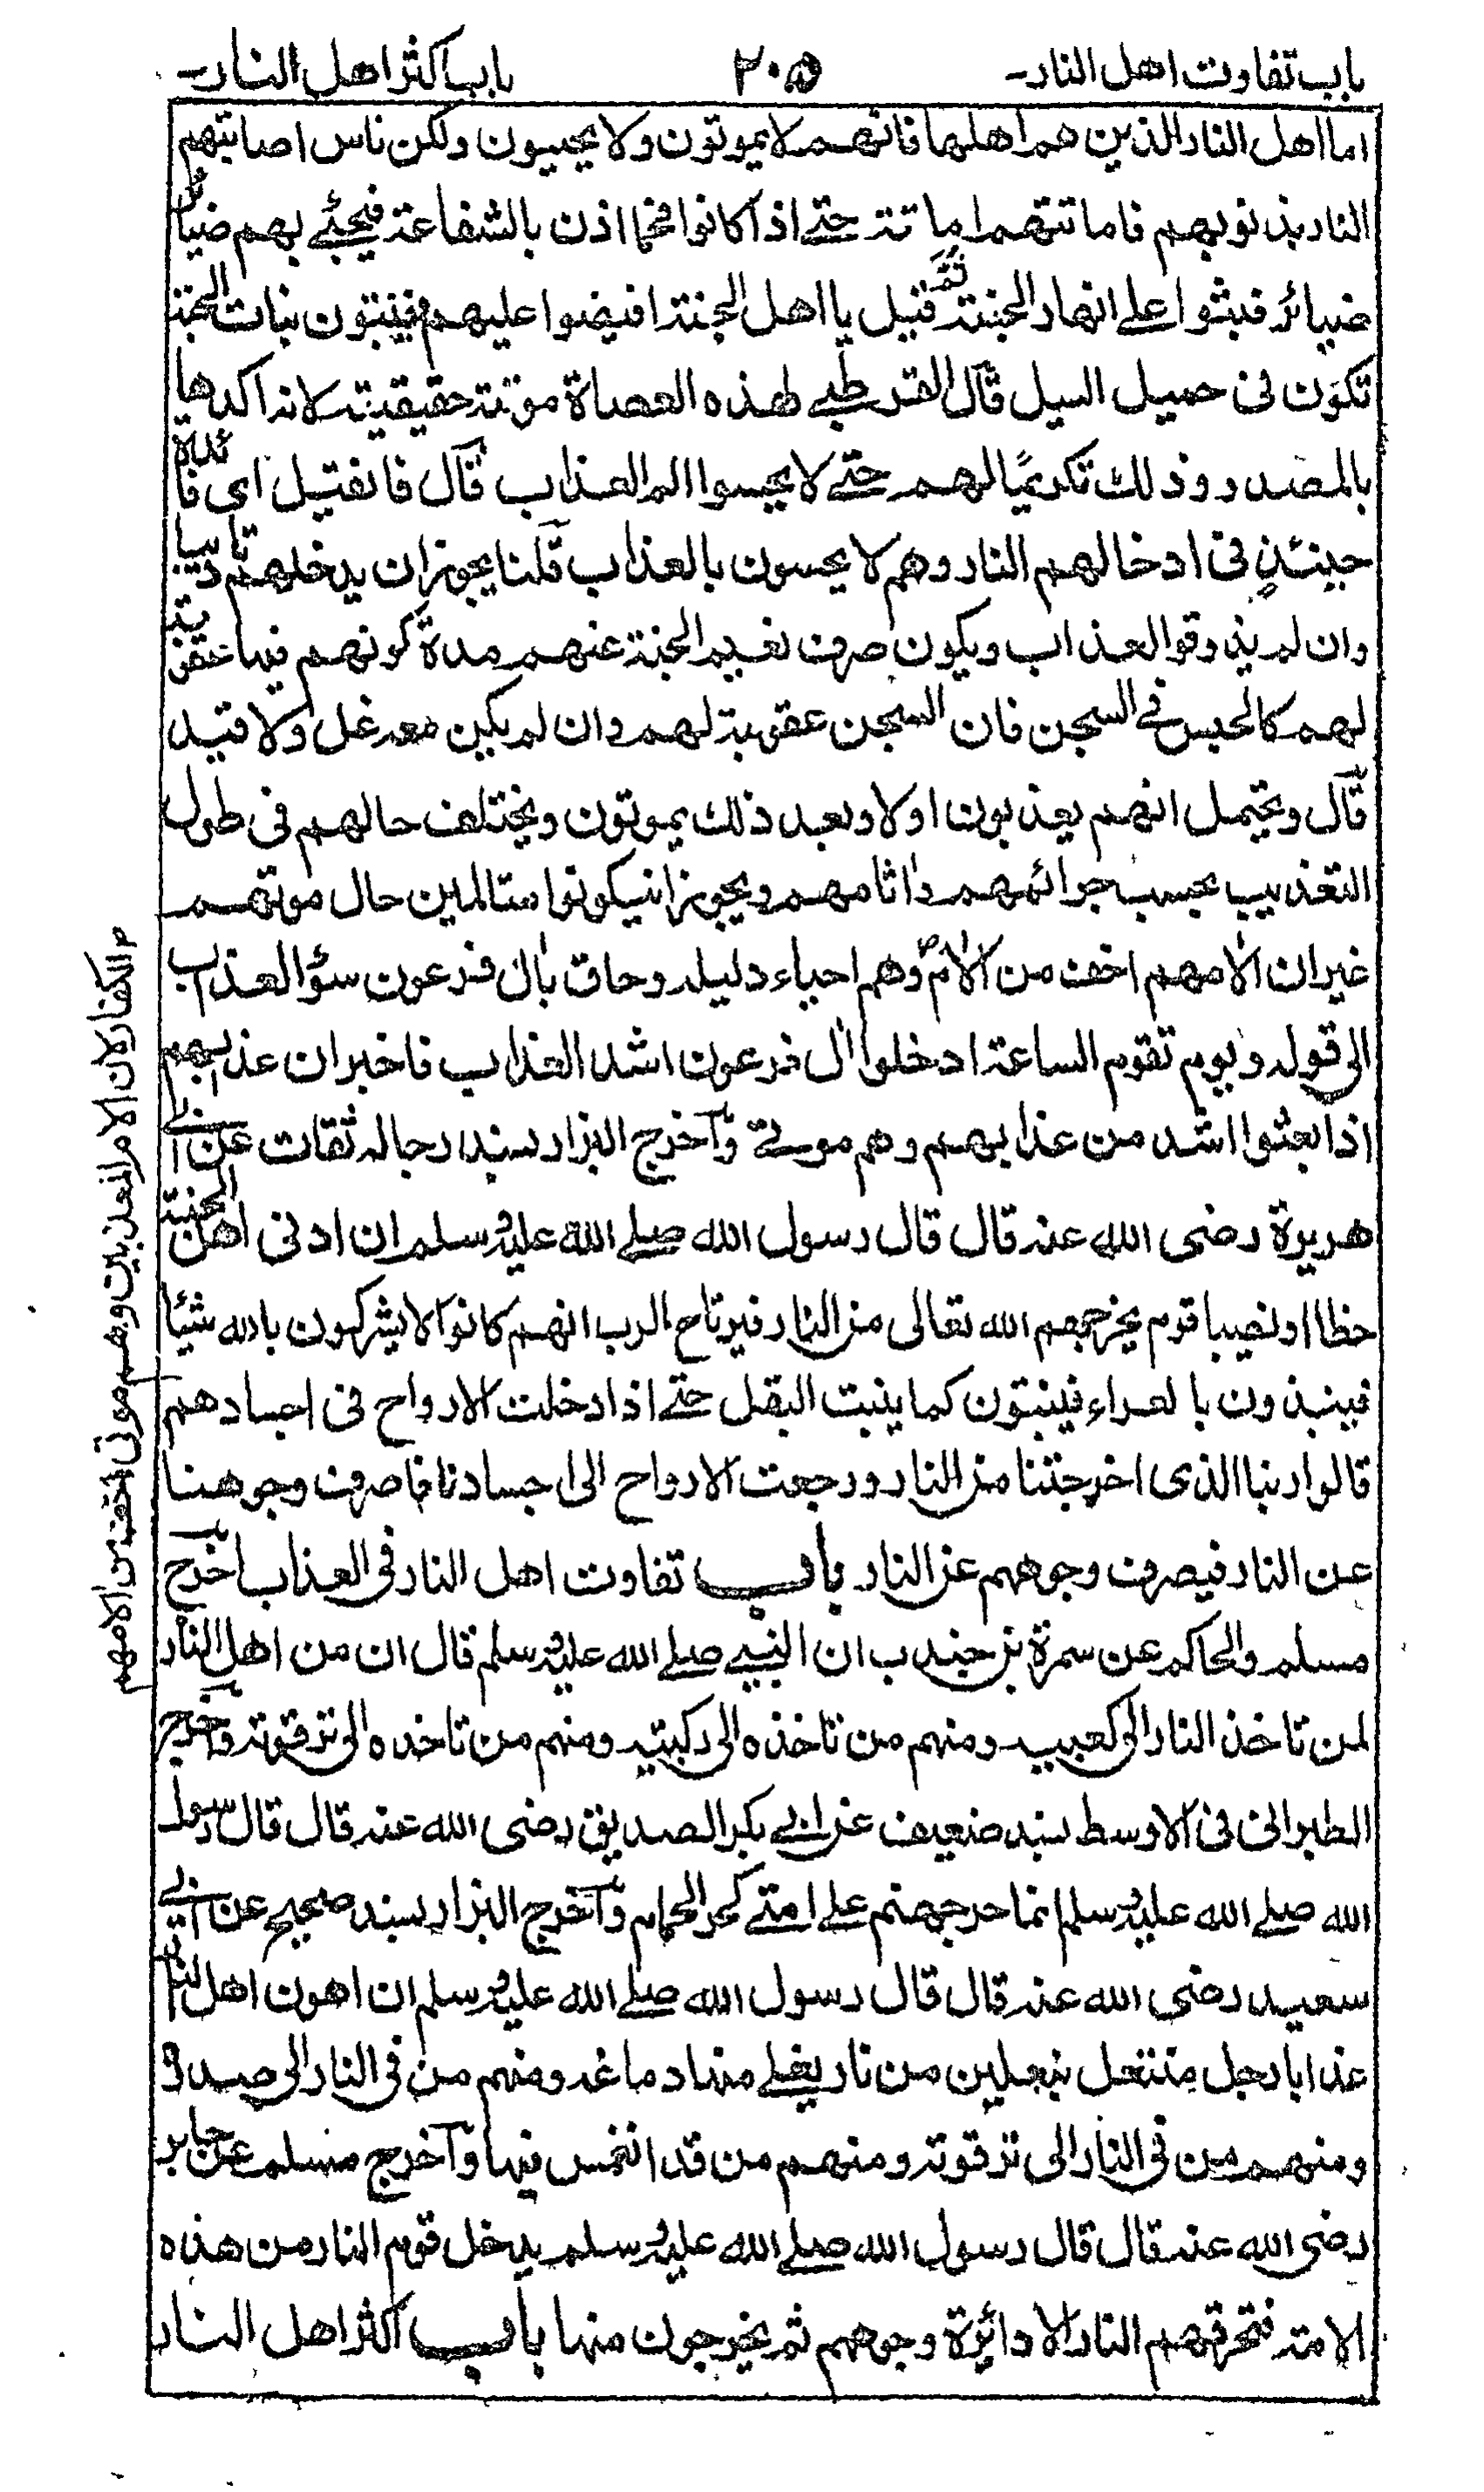 باب تفاوت اهل النار ٢٠٥ باب اكثر اهل النار
اما اهل النار الذين هم اهلها فانهم لا يموتون ولا يحيون ولكن ناس اصابتهم
النار بذنوبهم فاماتتهم اماتة حتے اذا كانوا فحما اذن بالشفاعة فيجئے بهم ضبائر
ضبائر فبثوا علے انهار الجنة ثم قيل يا اهل الجنة افيضوا عليهم فينبتون نبات الحبة
تكون فى حميل السيل قال القرطبے لهذه العصاة موتة حقيقية لانه اكدها
بالمصدر وذلك تكريمًا لهم حتے لا يحسوا الم العذاب قال فان قيل اى فائدة
حينئذٍ فى ادخالهم النار وهم لا يحسون بالعذاب قلنا يجوز ان يدخلهم تاديبا
وان لم يذوقوا العذاب ويكون صرف نعيم الجنة عنهم مدة كونهم فيها عقوبة
لهم كالحبس فے السجن فان السجن عقوبة لهم وان لم يكن معه غل ولا قيد
قال ويحتمل انهم يعذبون اولا وبعد ذلك يموتون ويختلف حالهم فى طول
التعذيب بحسب جرائمهم واثامهم ويجوز انيكونوا متالمين حال موتهم
غير ان الامهم اخف من الام وهم احياء دليله وحاق بال فرعون سؤ العذاب
الى قوله ويوم تقوم الساعة ادخلوا ال فرعون اشد العذاب فاخبر ان عذابهم
اذا بعثوا اشد من عذابهم وهم موتے واخرج البزار بسند رجاله ثقات عن ابے
هريرة رضى الله عنه قال قال رسول الله صلے الله عليه وسلم ان ادنى اهل الجنة
حظا او نصيبا قوم يخرجهم الله تعالى من النار فيرتاح الرب انهم كانوا لا يشركون بالله شيئا
فينبذون بالعراء فينبتون كما ينبت البقل حتے اذا دخلت الارواح فى اجسادهم
قالوا ربنا الذى اخرجتنا من النار ورجعت الارواح الى اجسادنا فاصرف وجوهنا
عن النار فيصرف وجوههم عن النار باب تفاوت اهل النار فى العذاب اخرج
مسلم والحاكم عن سمرة بن جندب ان النبے صلے الله عليه وسلم قال ان من اهل النار
لمن تاخذ النار الى كعبيه ومنهم من تاخذه الى ركبتيه ومنهم من تاخذه الى ترقوته واخرج
الطبرانى فى الاوسط بسند ضعيف عن ابے بكر الصديق رضى الله عنه قال قال رسول
الله صلے الله عليه وسلم انما حر جهنم علے امتے كحر الحمام واخرج البزار بسند صحيح عن ابے
سعيد رضى الله عنه قال قال رسول الله صلے الله عليه وسلم ان اهون اهل النار
عذابا رجل منتعل بنعلين من نار يغلے منها دماغه ومنهم من فى النار الى صدره
ومنهم من فى النار الى ترقوته ومنهم من قد انغمس فيها واخرج مسلم عن جابر
رضى الله عنه قال قال رسول الله صلے الله عليه وسلم يدخل قوم النار من هذه
الامة فتحرقهم النار الا دائرة وجوههم ثم يخرجون منها باب اكثر اهل النار
م الكفار لان الام المعذبين وهم موتى اخف من الامهم